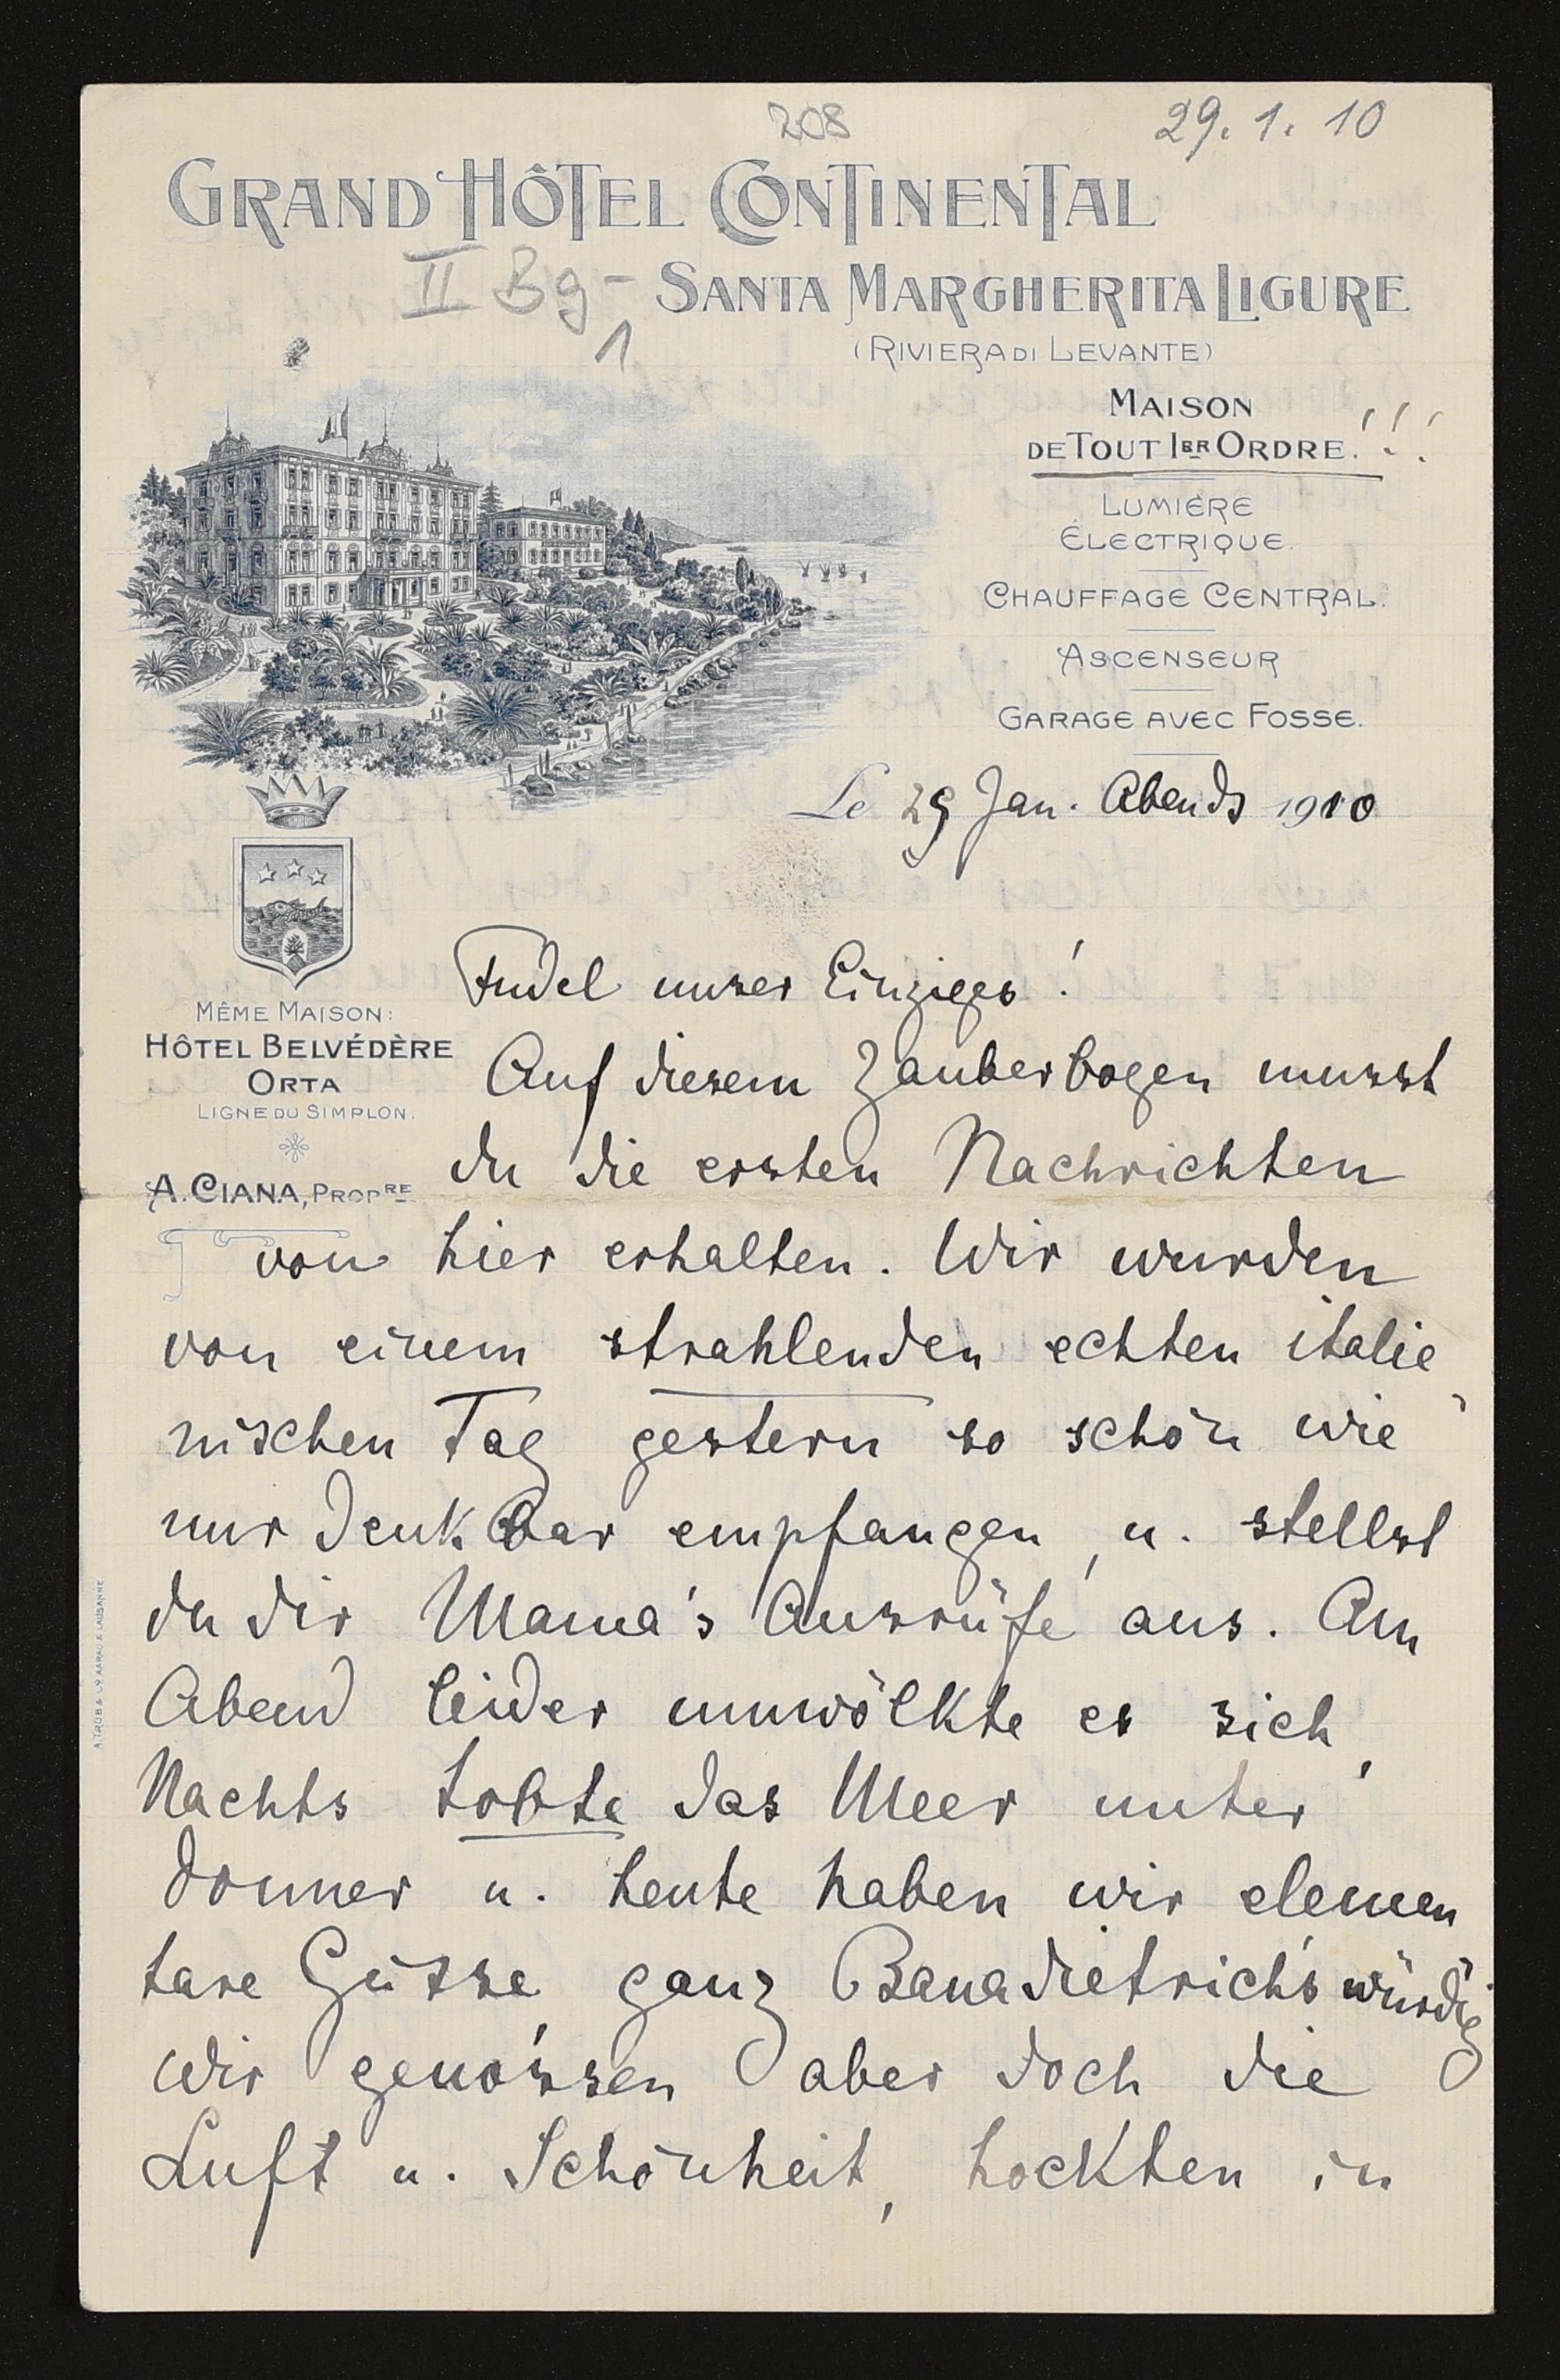 208
29. 1. 10
GRAND HÔTEL CONTINENTAL
II Bg-
1
SANTA MARGHERITA LIGURE
(RIVIERA DI LEVANTE)
MAISON
DE TOUT IER ORDRE.!!!
LUMIÈRE
ÉLECTRIQUE.
CHAUFFAGE CENTRAL.
ASCENSEUR
GARAGE AVEC FOSSE.
Le 29 Jan. Abends 1910
MÊME MAISON:
HÔTEL BELVÉDÈRE
ORTA
LIGNE DU SIMPLON.
A. CIANA, PROPRE
A. TRÜB & CIE AARAU & LAUSANNE
Fudel unser Einziges!
Auf diesem Zauberbogen musst
du die ersten Nachrichten
von hier erhalten. Wir wurden
von einem strahlenden echten italie
nischen Tag gestern so schön wie
nur denkbar empfangen, u. stellst
du dir Mama's Ausrüfe aus. Am
Abend leider umwölkte es sich,
Nachts tobte das Meer unter
Donner u. heute haben wir elemen
tare Güsse, ganz Banadietrich's würdig
Wir genossen aber doch die
Luft u. Schönheit, hockten in